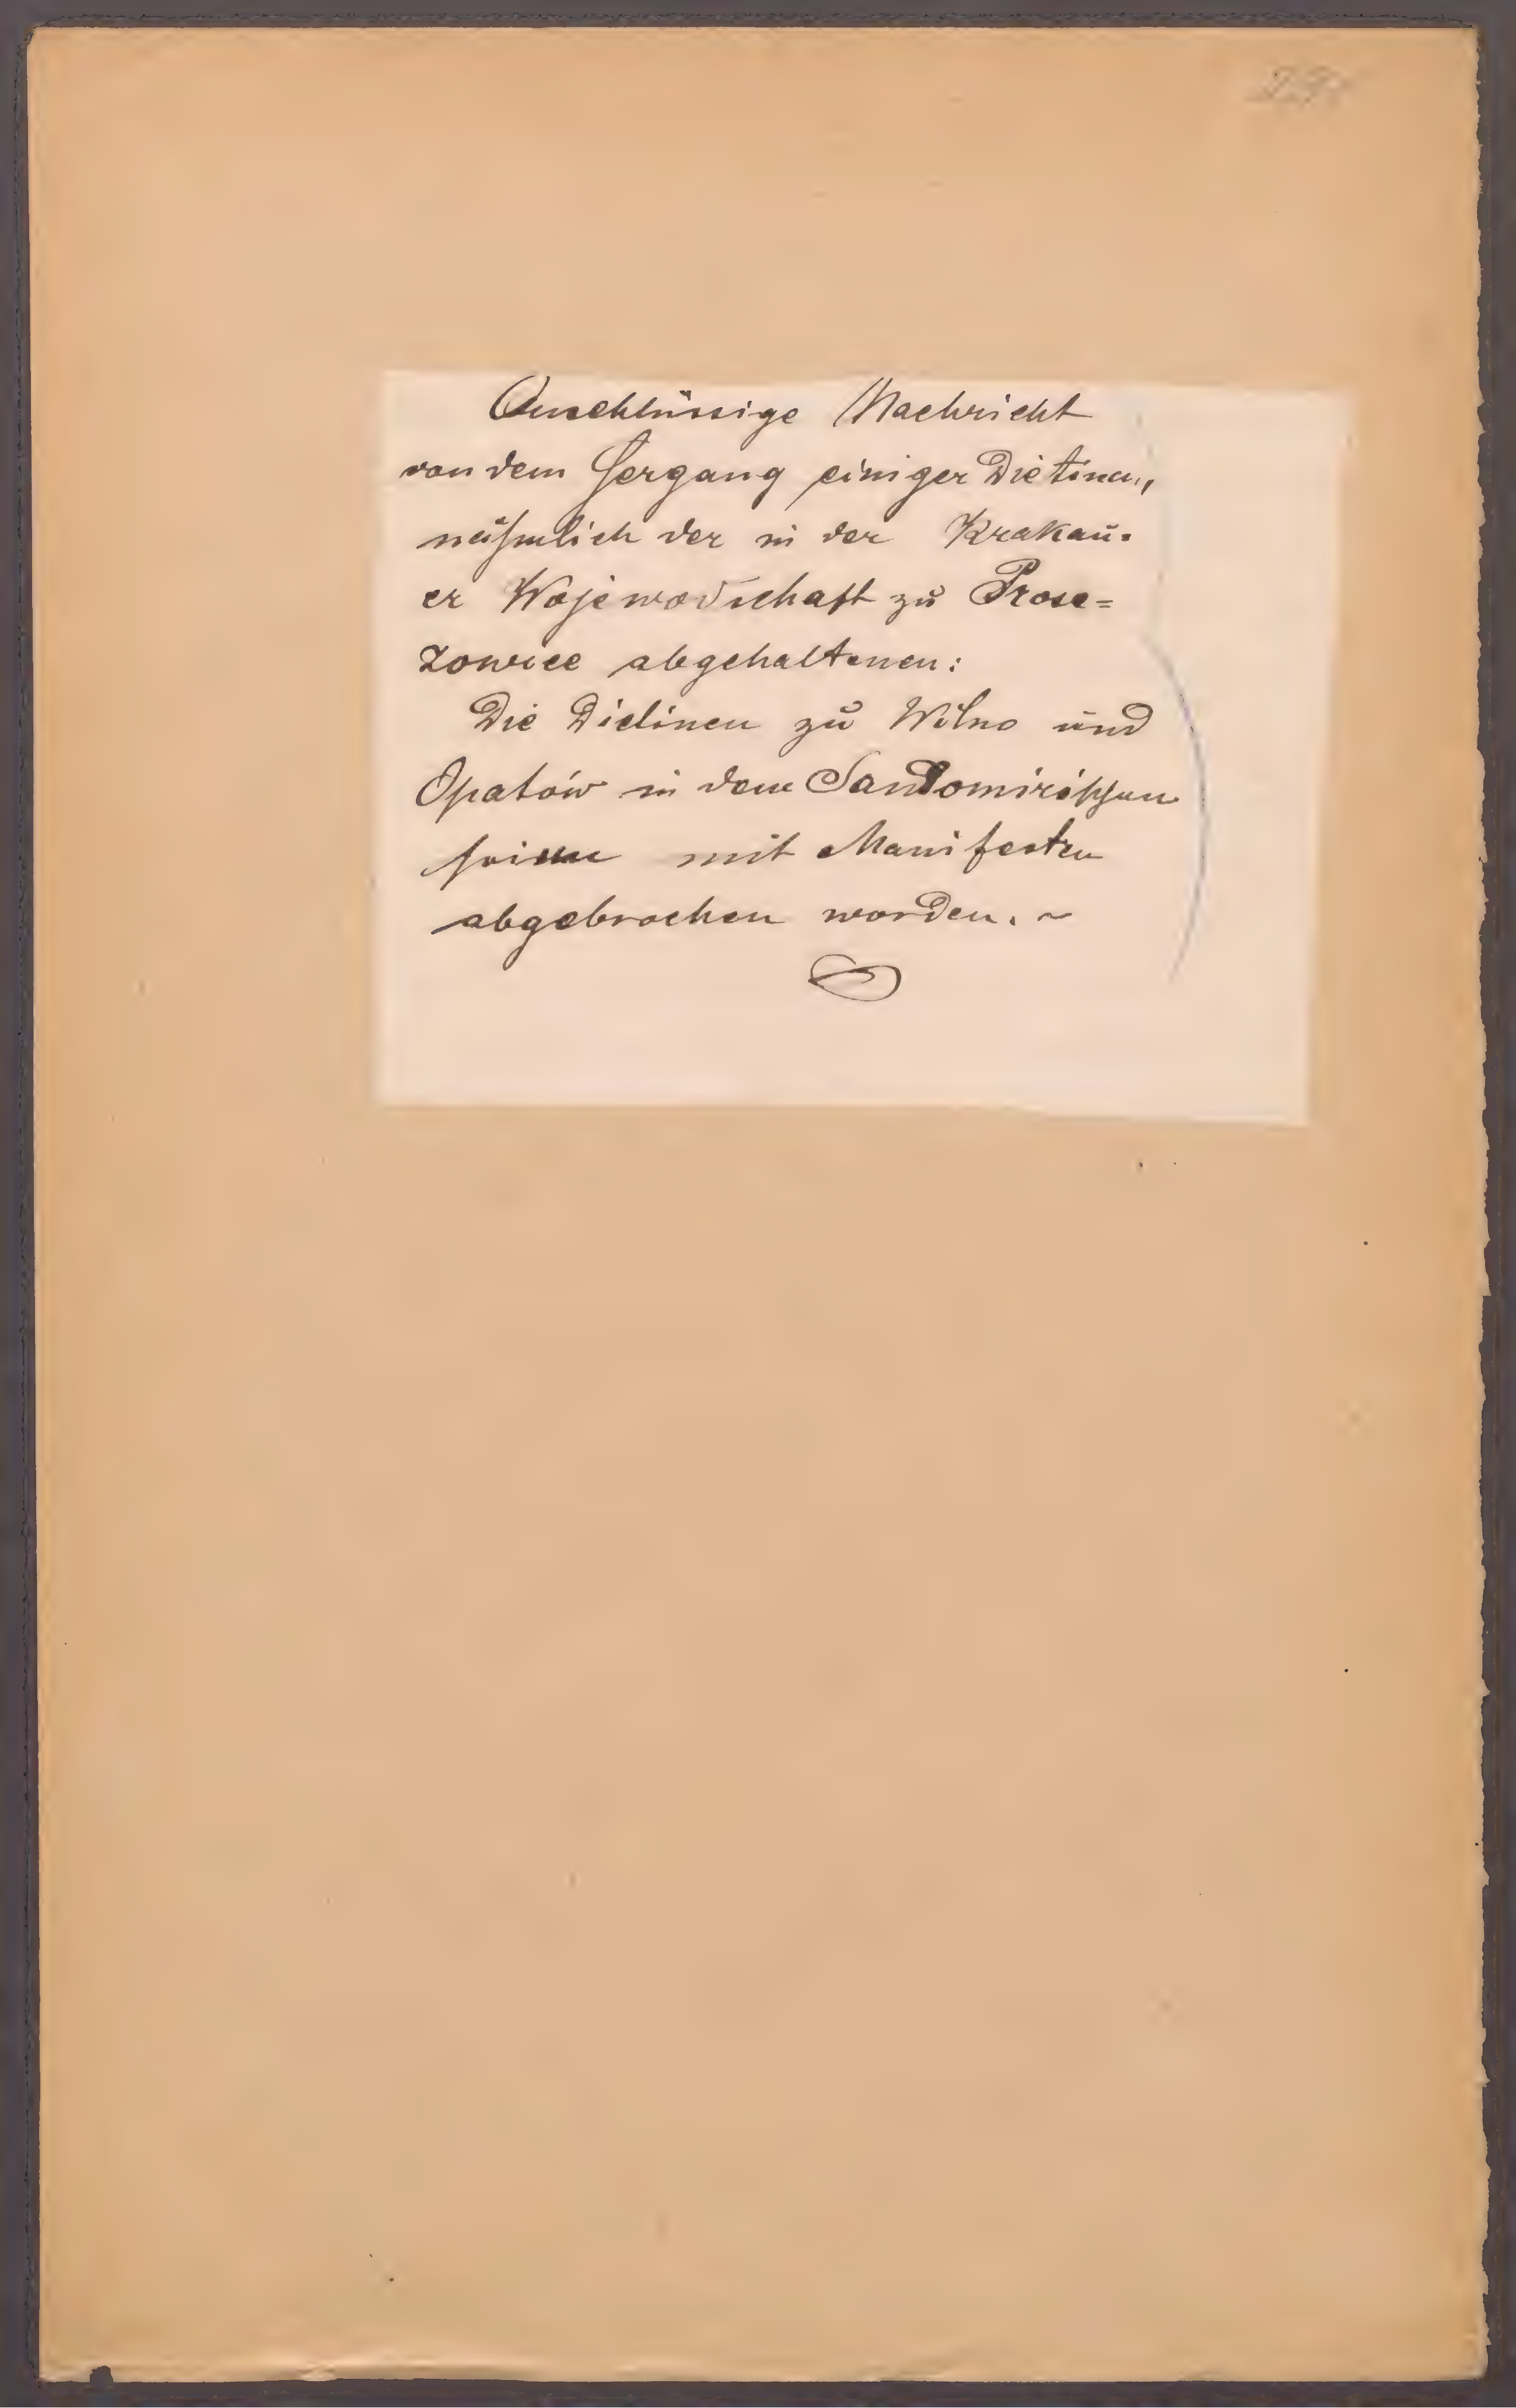 Anschlüssige Nachricht
von dem Hergang einiger Dietinen,
nähmlich der in der Krakau-
er Wojewodschaft zu Prosc=
zowice abgehaltenen:
Die Dietinen zu Wilno und
Opatów in dem Sandomirischen
mit Manifesten
abgebrochen worden. ~